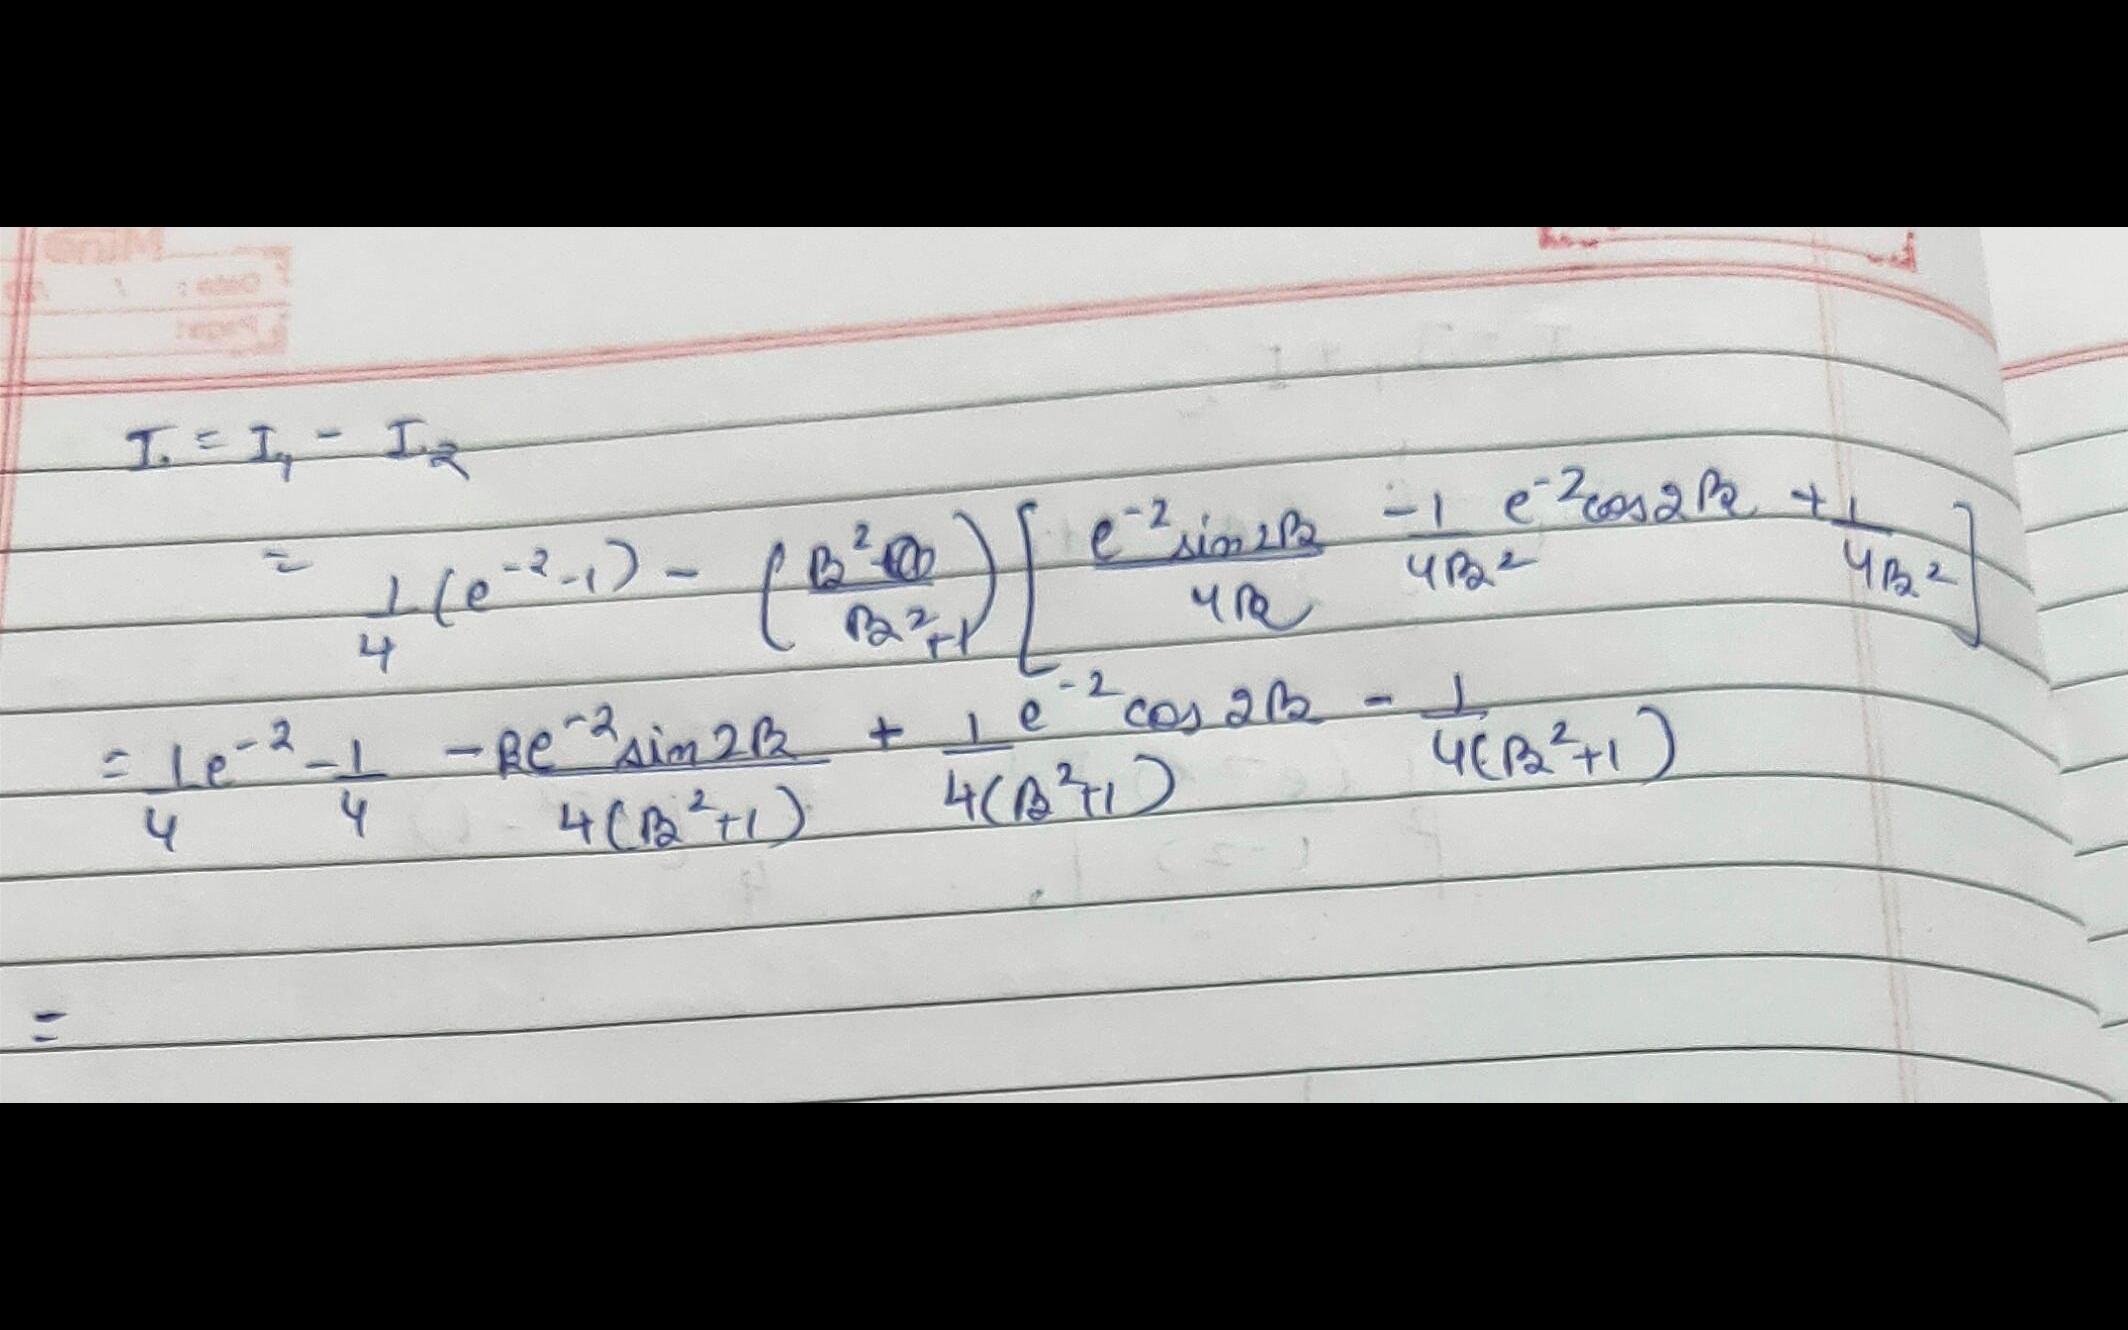 I. = I₁ - I₂
= 1/4 (e⁻² - 1) - (β²/(β²+1)) [ e⁻² sin2β/4β - 1/4β² e⁻² cos2β + 1/4β² ]
= 1/4 e⁻² - 1/4 - βe⁻² sin2β/4(β²+1) + 1/4(β²+1) e⁻² cos2β - 1/4(β²+1)
=